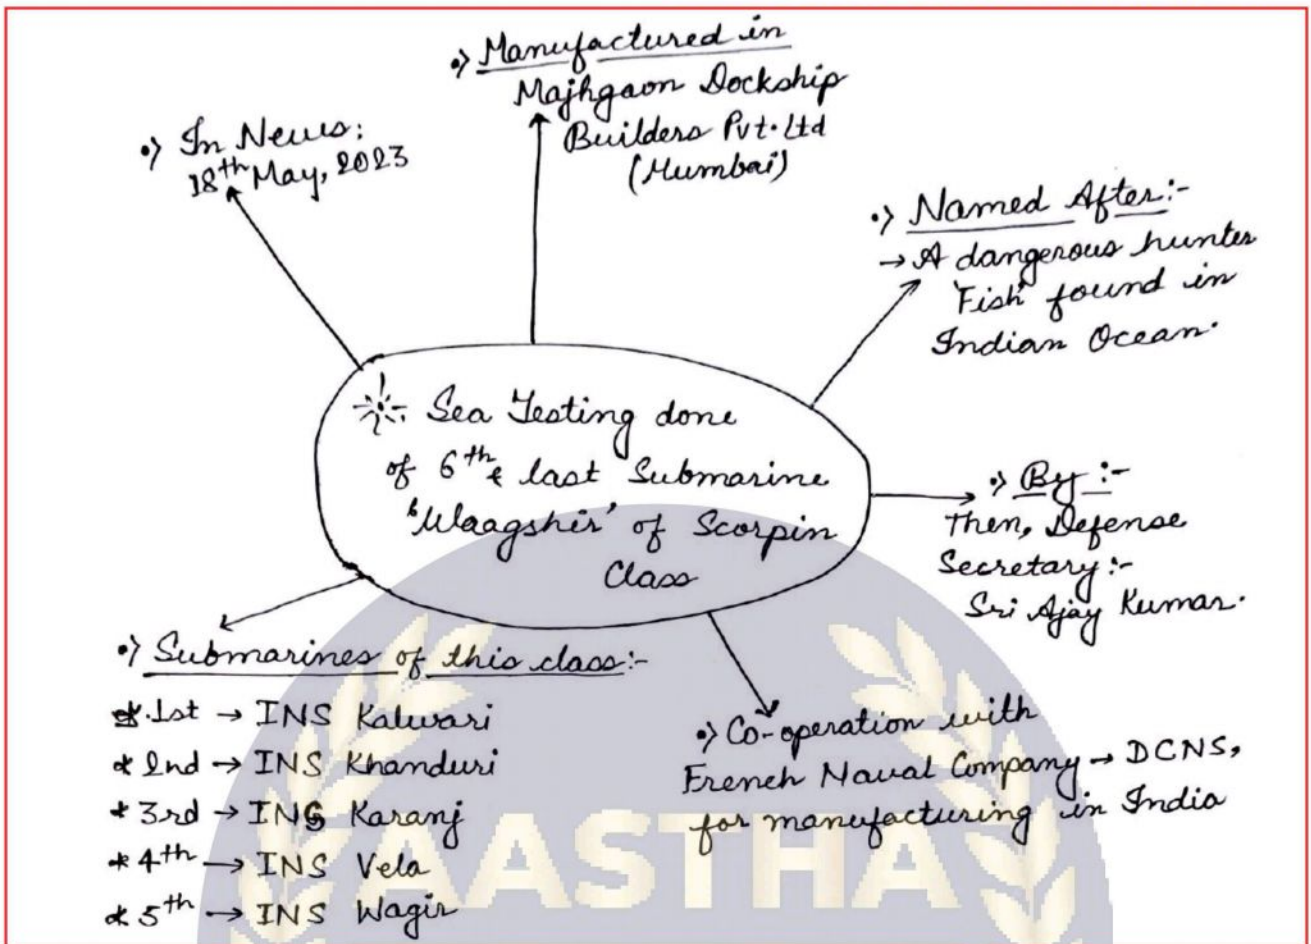 •> Manufactured in
Majhgaon Dockship
Builders Pvt. Ltd
(Mumbai)
•> In News:
18th May, 2023
•> Named After:-
→ A dangerous hunter
'Fish' found in
Indian Ocean.
Sea Testing done
of 6th & last Submarine
'Waagshir' of Scorpin
Class
•> By :-
Then, Defense
Secretary:-
Sri Ajay Kumar.
•> Submarines of this class:-
* 1st → INS Kalwari
* 2nd → INS Khanduri
* 3rd → INS Karanj
* 4th → INS Vela
* 5th → INS Wagir
•> Co-operation with
French Naval Company → DCNS,
for manufacturing in India
AASTHA